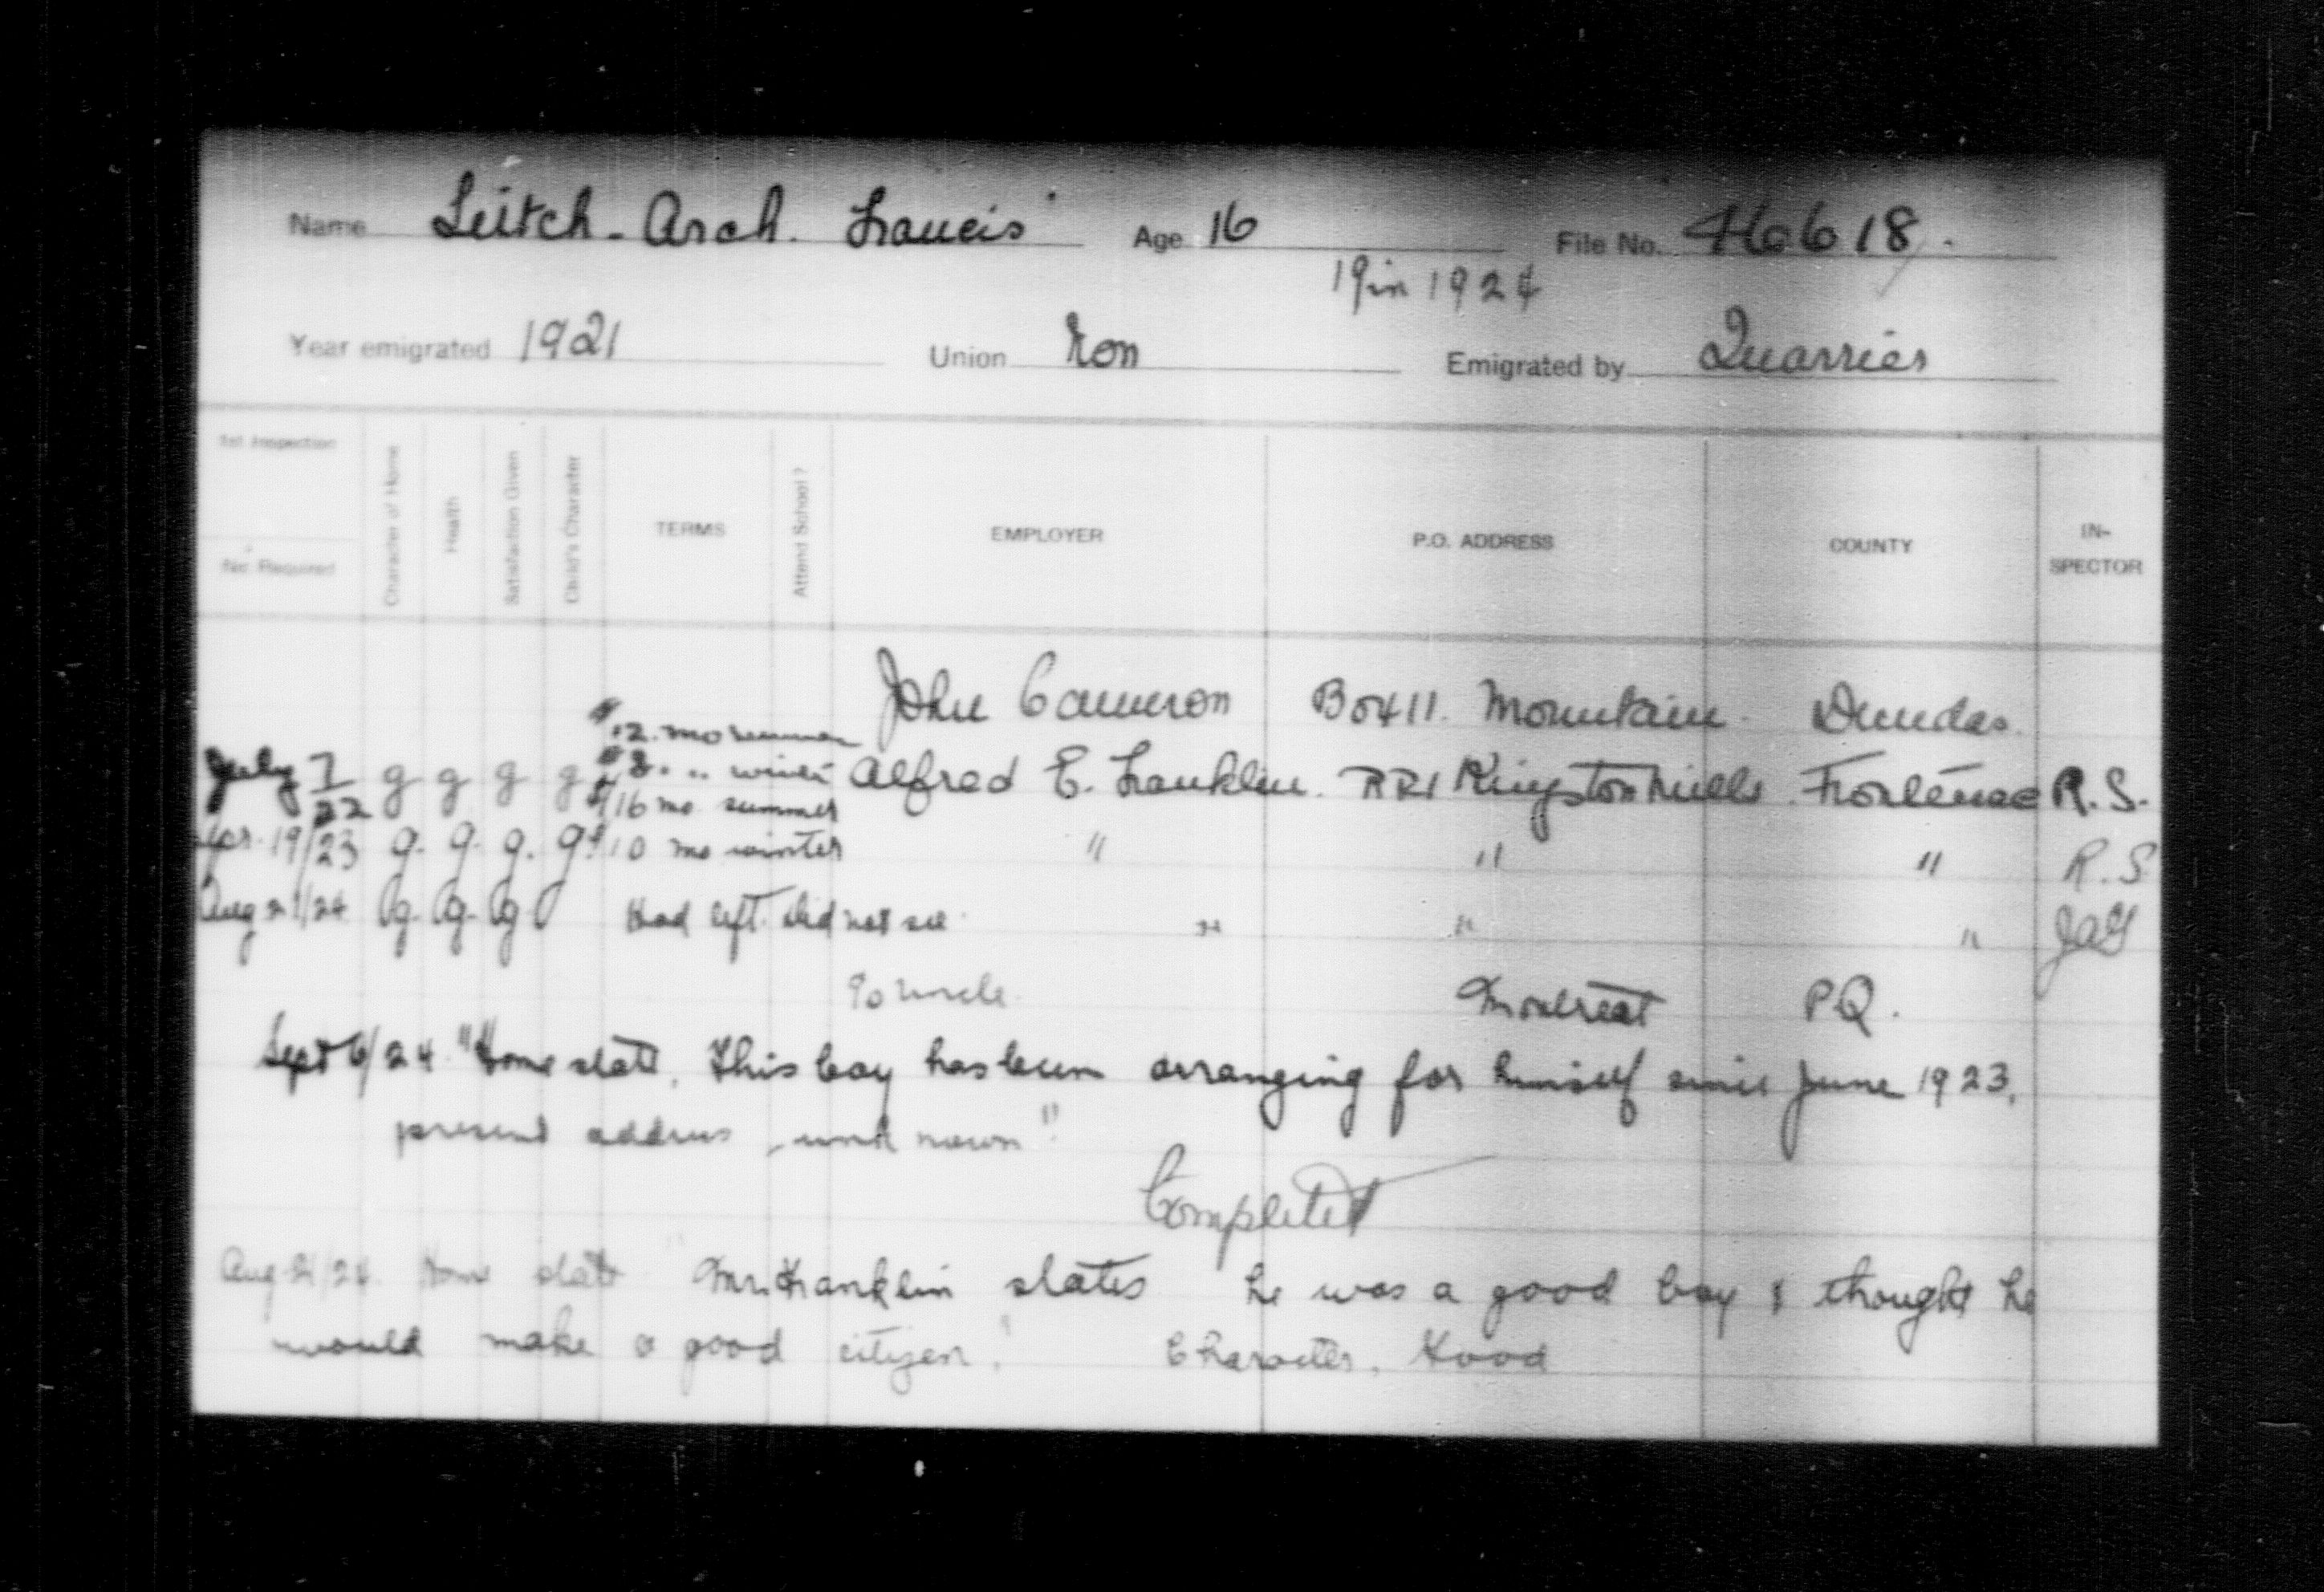 Name Leitch - Arch. Francis Age 16 File No. 46618.
19 in 1924
Year emigrated 1921 Union Non Emigrated by Quarries
1st Inspection
No. Required
Character of Home
Health
Satisfaction Given
Child's Character
TERMS
Attend School?
EMPLOYER
P.O. ADDRESS
COUNTY
IN-
SPECTOR
John Cameron Box 11. Mountain. Dundas.
$12. mo summer
July 7/22 g g g g $8. " winter Alfred E. Franklin. RR1 Kingston Mills. Frontenac R.S.
$16 mo summer
Apr. 19/23 g. g. g. g. $10 mo winter " " " R.S
Aug 21/24 g. g. g. Had left. did not see " " " JAG
To uncle. Montreal P.Q.
Sept 6/24 "Home state. This boy has been arranging for himself since June 1923,
present address, unknown"
Completed
Aug 21/24. Home state "Mr. Franklin states he was a good boy & thought he
would make a good citizen." Character, Good